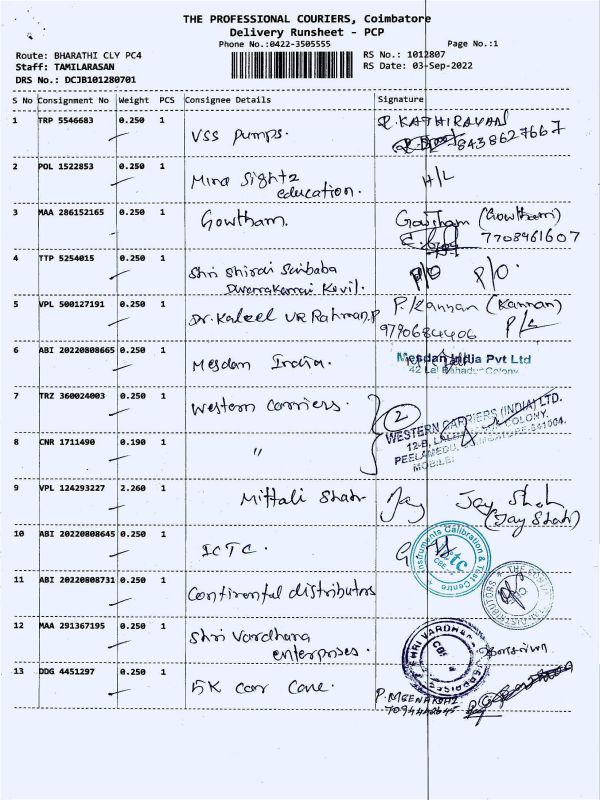 THE PROFESSIONAL COURIERS, Coimbatore
Delivery Runsheet - PCP
Phone No.:0422-3505555
Page No.:1
Route: BHARATHI CLY PC4
RS No.: 1012807
Staff: TAMILARASAN
RS Date: 03-Sep-2022
DRS No.: DCJB101280701
S No Consignment No Weight PCS Consignee Details Signature
1 TRP 5546683 0.250 1 VSS Pumps. R. KATHIRAVAN
8438627667
2 POL 1522853 0.250 1 Mind Sightz H/L
education.
3 MAA 286152165 0.250 1 Gowtham. Gowtham (Gowtham)
7708961607
4 TTP 5254015 0.250 1 Shri Shirdi Saibaba P/O P/O.
Kovil.
5 VPL 500127191 0.250 1 Dr. Kaleel UR Rahman.P P. Kannan (Kannan)
9790684406
6 ABI 20220808665 0.250 1 Mesdan India. Mesdan India Pvt Ltd
42 Lal Bahadur Colony
7 TRZ 360024003 0.250 1 Western Carriers. 2
WESTERN CARRIERS (INDIA) LTD.
12-B, COLONY,
8 CNR 1711490 0.190 1 "
PEELAMEDU, COIMBATORE-641004.
MOBILE:
9 VPL 124293227 2.260 1 Mittali Shah Jay Jay Shah
(Jay Shah)
10 ABI 20220808645 0.250 1 ICTC. Instruments Calibration & Test Centre
ictc
CBE
11 ABI 20220808731 0.250 1 Continental distributors
DISTRIBUTORS
12 MAA 291367195 0.250 1 Shri Vardhana SHRI VARDHANA
enterprises. ENTERPRISES
13 DDG 4451297 0.250 1 5K Car Care. P. MEENAKSHI